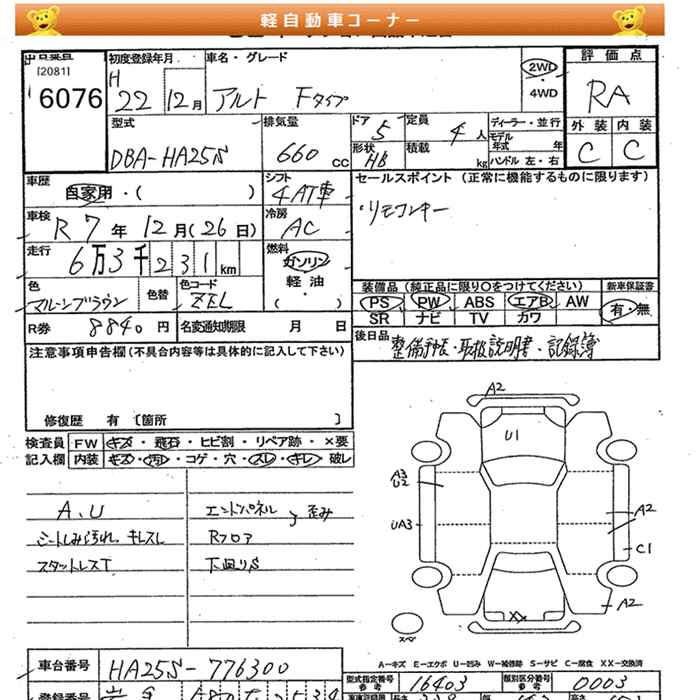 軽自動車コーナー
[2081]
6076
初度登録年月
H 22 12月
車名・グレード
アルト Fタイプ
2WD
・
4WD
評価点
RA
外装 内装
C C
型式
DBA-HA25S
排気量
660 cc
ドア 5
定員 4 人
形状 HB
積載 kg
ディーラー・並行
モデル年式 年
ハンドル 左・右
車歴
自家用・( )
シフト
4AT車
セールスポイント (正常に機能するものに限ります)
・リモコンキー
車検
R 7 年 12 月 (26 日)
冷房
AC
走行
6万3千231km
燃料
ガソリン
軽油
( )
色
マルーンブラウン
色替
色コード
ZEL
装備品 (純正品に限り○をつけてください)
PS PW ABS エアB AW
SR ナビ TV カワ
新車保証書
有・無
R券 8840 円
名変通知期限 月 日
後日品
整備手帳・取扱説明書・記録簿
注意事項申告欄(不具合内容等は具体的に記入して下さい)
修復歴 有 〔箇所 〕
検査員記入欄
FW キズ・飛石・ヒビ割・リペア跡・×要
内装 キズ・汚・コゲ・穴・スレ・キレ・破レ
A、U
シートしみ汚れ、キレスレ
スタットレスT
エンドパネル
Rフロア
歪み
下廻りS
A2
U1
A3
U2
UA3
A2
C1
A2
XX
スペア
A−キズ E−エクボ U−凹み W−補修跡 S−サビ C−腐食 XX−交換済
車台番号
HA25S-776300
型式指定番号
参考
16403
類別区分番号
参考
0003
登録番号